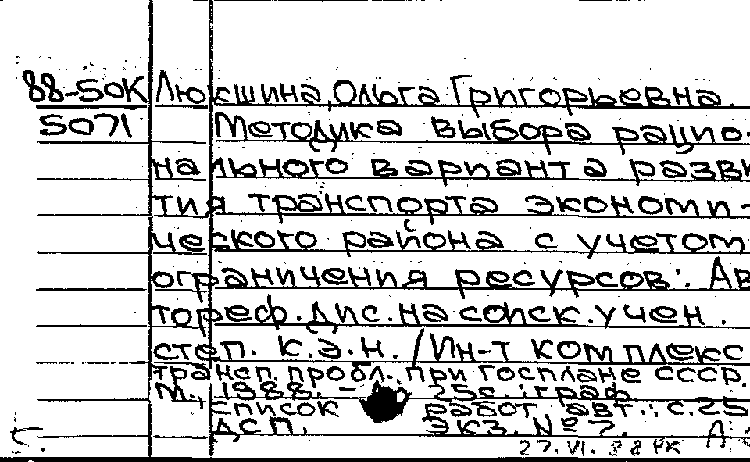 88-50К Люкшина, Ольга Григорьевна.
5071 Методика выбора рацио-
нального варианта разви
тия транспорта экономи-
ческого района с учетом
ограничения ресурсов: Ав
тореф. дис. на соиск. учен.
степ. к.э.н. / Ин-т комплекс
трансп. пробл. при Госплане СССР.
М., 1988. - 25с.: граф.
Список работ авт.: с.25
ДСП. Экз. № 7.
27.VI.88 РК